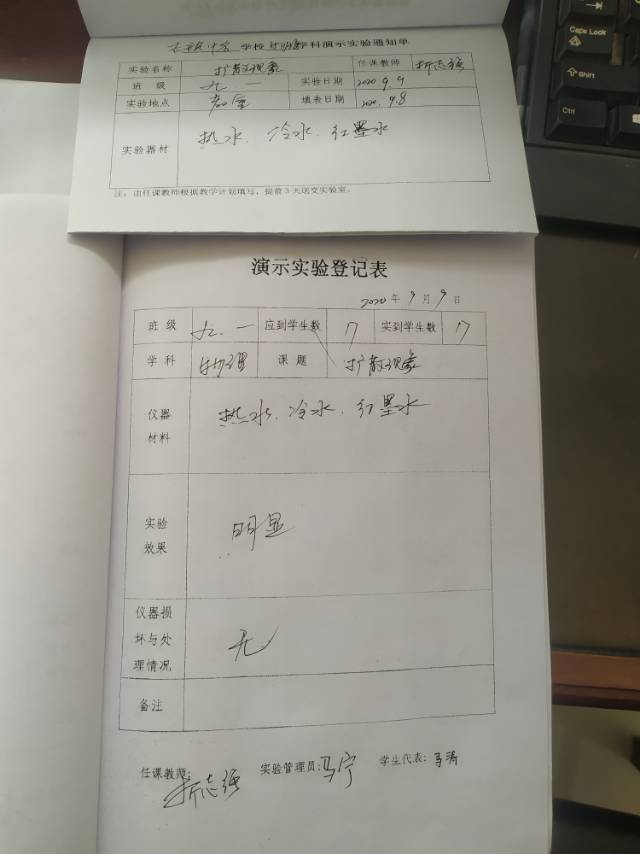 学校 物理学科演示实验通知单
实验名称 扩散现象 任课教师 靳志强
班 级 九一 实验日期 2020.9.9
实验地点 教室 填表日期 2020.9.8
实验器材 热水、冷水、红墨水
注：由任课教师根据教学计划填写，提前3天送交实验室。
演示实验登记表
2020年9月9日
班 级 九.一 应到学生数 17 实到学生数 17
学 科 物理 课 题 扩散现象
仪器材料 热水、冷水、红墨水
实验效果 明显
仪器损坏与处理情况 无
备注
任课教师: 靳志强 实验管理员: 马宁 学生代表: 马涛
Caps Lock
Shift
Ctrl